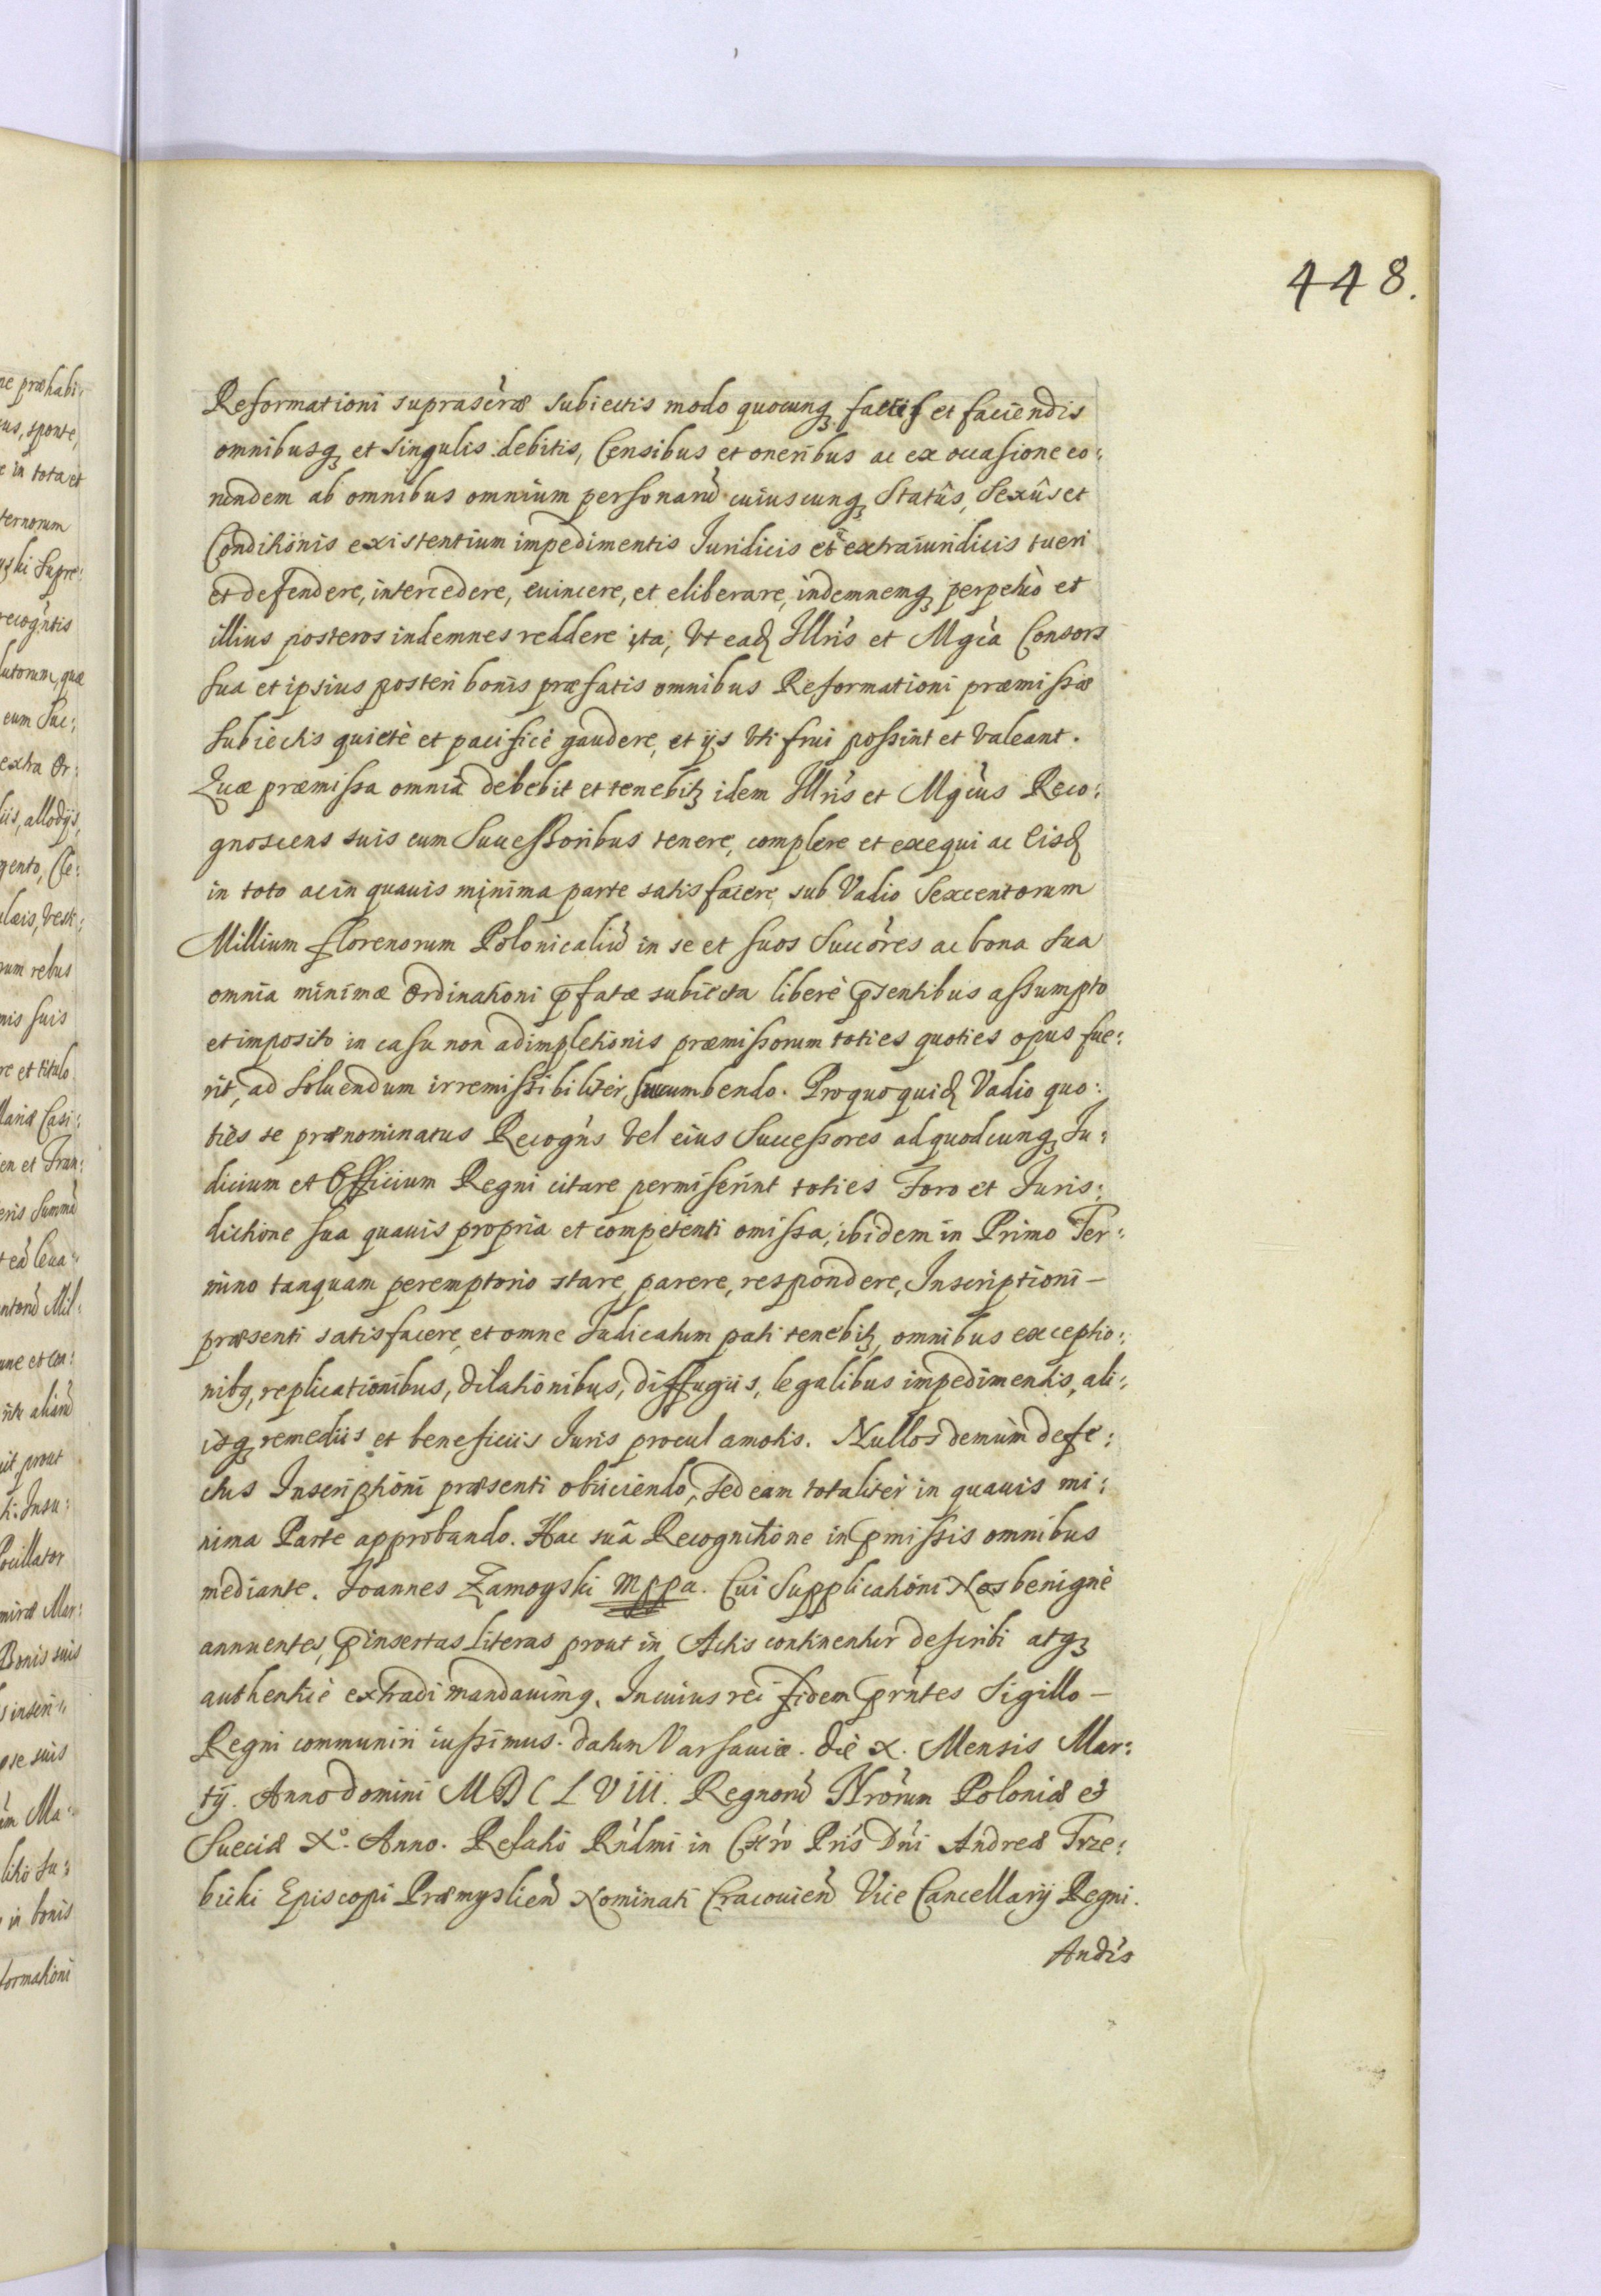 448.
Reformationi suprascr̀æ subiectis modo quocunqꝫ factis et faciendis
omnibusqꝫ et singulis debitis, Censibus et oneribus ac ex occasione eo:
rundem ab omnibus omnium personarũ cuiuscunqꝫ Statûs, Sexûs et
Conditionis existentium impedimentis Iuridicis et extraiuridicis tueri
et defendere, intercedere, euincere, et eliberare, indemnemqꝫ perpetuò et
illius posteros indemnes reddere ita, Vt eadꝫ Illris et Mgca Consors
sua et ipsius posteri bonis præfatis omnibus Reformationi præmissæ
subiectis quietè et pacificè gaudere, et ijs Vti frui possint et Valeant.
Quæ præmissa omnia debebit et tenebitꝫ idem Illris et Mgcus Reco:
gnoscens suis cum Successoribus tenere, complere et exequi ac Eisdꝫ
in toto ac in quauis minima parte satisfacere, sub Vadio Sexcentorum
Millium florenorum Polonicaliũ in se et suos Succòres ac bona sua
omnia minimæ Ordinationi pfatæ subiecta liberè psentibus assumpto
et imposito in casu non adimpletionis præmissorum toties quoties opus fue:
rit, ad soluendum irremissibilitèr, succumbendo. Pro quo quidꝫ Vadio quo:
tiès se prænominatus Recogns Vel eius Successores ad quodcunqꝫ Iu:
dicium et Officium Regni citare permiserint toties Foro et Iuris:
dictione sua quauis propria et competenti omissa, ibidem in Primo Ter:
mino tanquam peremptorio stare, parere, respondere, Inscriptioni –
præsenti satisfacere, et omne Iudicatum pati tenebitꝫ, omnibus exceptio:
nibꝫ, replicationibus, dilationibus, diffugiis, legalibus impedimentis, ali:
isqꝫ remediis et beneficiis Iuris procul amotis. Nullos demùm defe:
ctus Inscriptioni præsenti obiiciendo, sed eam totalitèr in quauis mi:
nima Parte approbando. Hac suâ Recognitione in pmissis omnibus
mediante. Joannes Zamoyski mppa. Cui Supplicationi Nos benignè
annuentes, pinsertas Literas prout in Actis continentur describi atqꝫ
authenticè extradi mandauimꝰ. In cuius rei fidem prntes Sigillo –
Regni communiri iussimus. Datum Varsauiæ. Diè X. Mensis Mar:
tÿ. Anno Domini MDCLVIII. Regnorũ Nrorum Poloniæ et
Sueciæ Xº. Anno. Relatio Rndmi in Chro Pris Dni Andreæ Trze:
bicki Episcopi Præmyslien Nominati Cracouien Vice Cancellarÿ Regni.
Andis